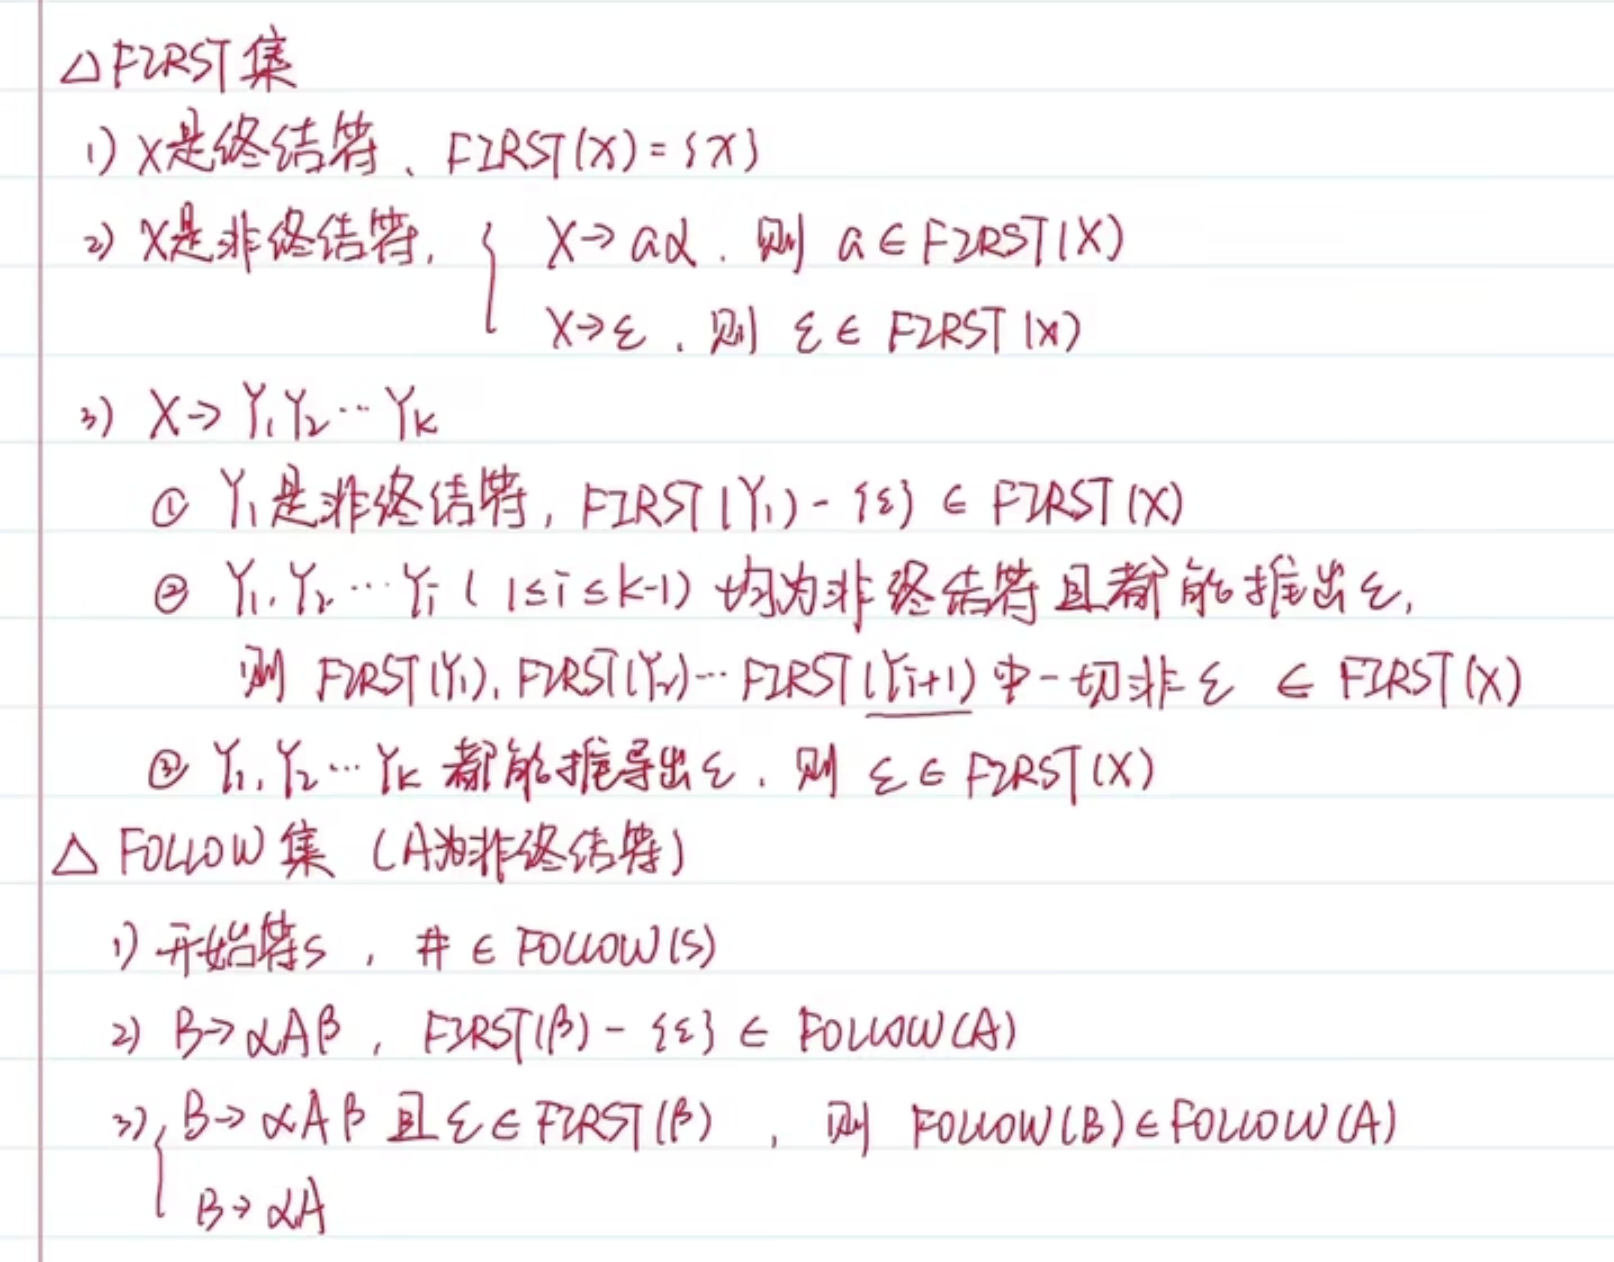 △FIRST集
1) X是终结符、FIRST(X)={X}
2) X是非终结符, { X→aα, 则 a∈FIRST(X)
X→ε, 则 ε∈FIRST(X)
3) X→Y₁Y₂…Yₖ
① Y₁是非终结符, FIRST(Y₁)-{ε}∈FIRST(X)
② Y₁,Y₂…Yᵢ(1≤i≤k-1)均为非终结符且都能推出ε,
则 FIRST(Y₁),FIRST(Y₂)…FIRST(Yᵢ₊₁)中一切非ε ∈ FIRST(X)
③ Y₁,Y₂…Yₖ 都能推导出ε, 则 ε∈FIRST(X)
△ FOLLOW集 (A为非终结符)
1) 开始符S, #∈FOLLOW(S)
2) B→αAβ, FIRST(β)-{ε}∈FOLLOW(A)
3) { B→αAβ 且ε∈FIRST(β), 则 FOLLOW(B)∈FOLLOW(A)
B→αA